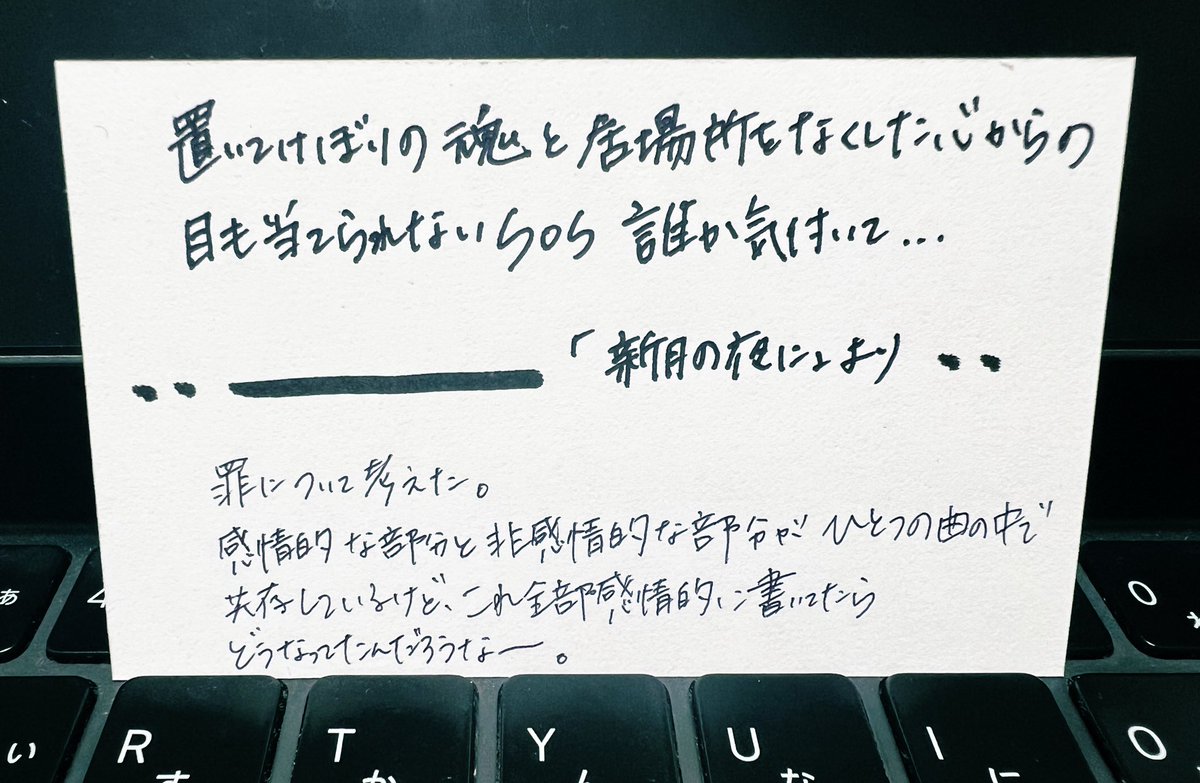 置いてけぼりの魂と居場所をなくした心からの
目も当てられないSOS 誰か気付いて...
「新月の夜に」より
罪について考えた。
感情的な部分と非感情的な部分が ひとつの曲の中で
共存しているけど、これ全部感情的に書いてたら
どうなってたんだろうなー。
ぁ 4 0
い R す T か Y ん U な I に O